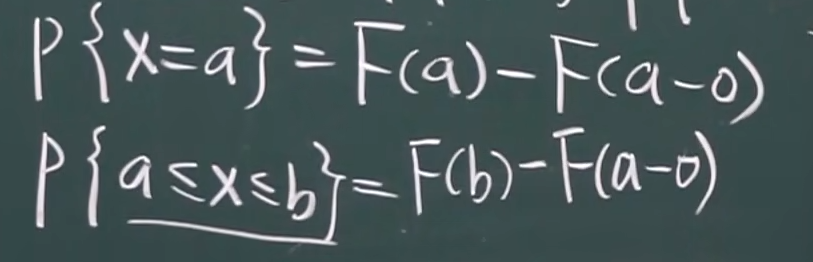 P{x=a}=F(a)-F(a-0)
P{a≤x≤b}=F(b)-F(a-0)